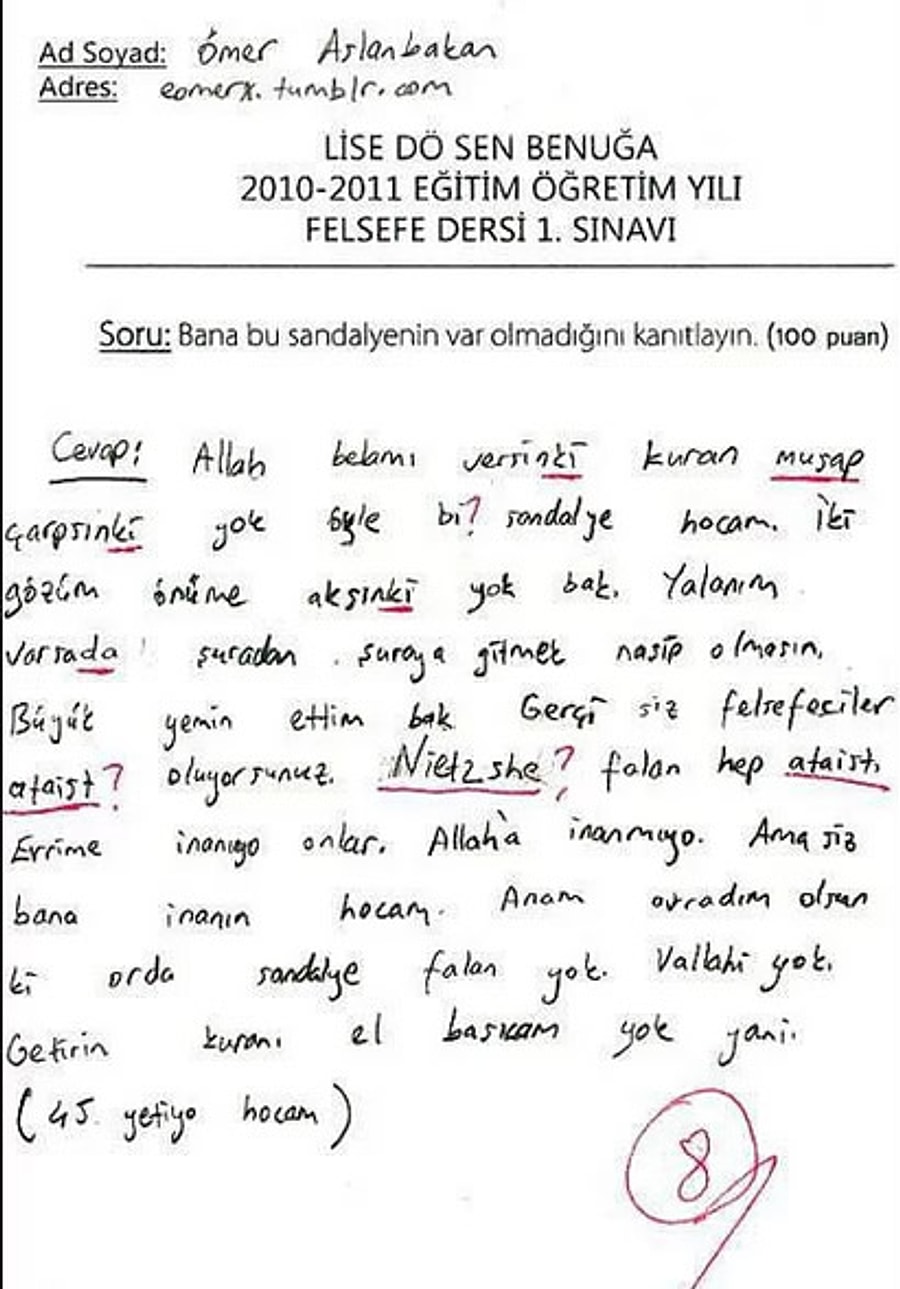 Ad Soyad: Ömer Aslanbakan
Adres: eomerx.tumblr.com
LİSE DÖ SEN BENUĞA
2010-2011 EĞİTİM ÖĞRETİM YILI
FELSEFE DERSİ 1. SINAVI
Soru: Bana bu sandalyenin var olmadığını kanıtlayın. (100 puan)
Cevap: Allah belamı versinki kuran muşap
çarpsinki yok öyle bi? sandalye hocam. İki
gözüm önüme akşinki yok bak. Yalanım
varsada şuradan şuraya gitmek nasip olmasın.
Büyük yemin ettim bak Gerçi siz felsefeciler
ataist? oluyorsunuz. Nietzshe? falan hep ataist.
Evrime inanıyo onlar. Allah'a inanmıyo. Ama siz
bana inanın hocam. Anam avradım olsun
ki orda sandalye falan yok. Vallahi yok.
Getirin kuranı el basıcam yok yani.
(45 yetiyo hocam)
8